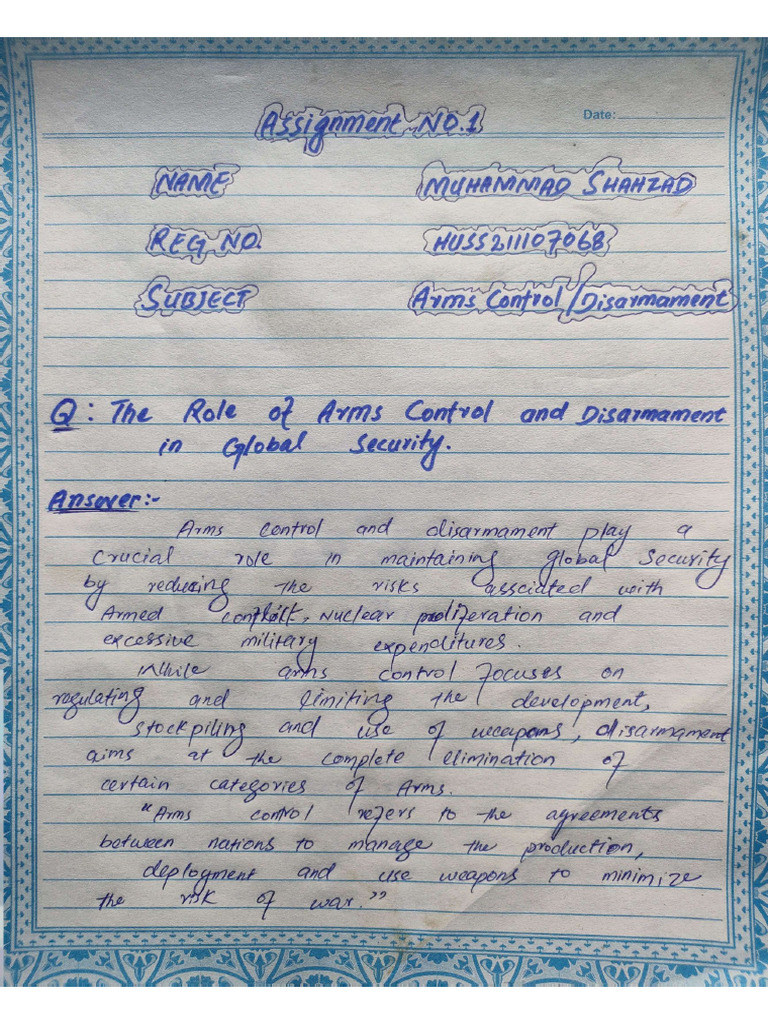 Assignment NO.1
Date:
NAME MUHAMMAD SHAHZAD
REG NO. HUSS211107068
SUBJECT Arms Control/Disarmament
Q: The Role of Arms Control and Disarmament
in Global Security.
Answer:-
Arms control and disarmament play a
crucial role in maintaining global security
by reducing the risks assciated with
Armed conflict, Nuclear proliferation and
excessive military expenditures.
While arms control focuses on
regulating and limiting the development,
stockpiling and use of weapons, disarmament
aims at the complete elimination of
certain categories of Arms.
"Arms control refers to the agreements
between nations to manage the production,
deployment and use weapons to minimize
the risk of war."